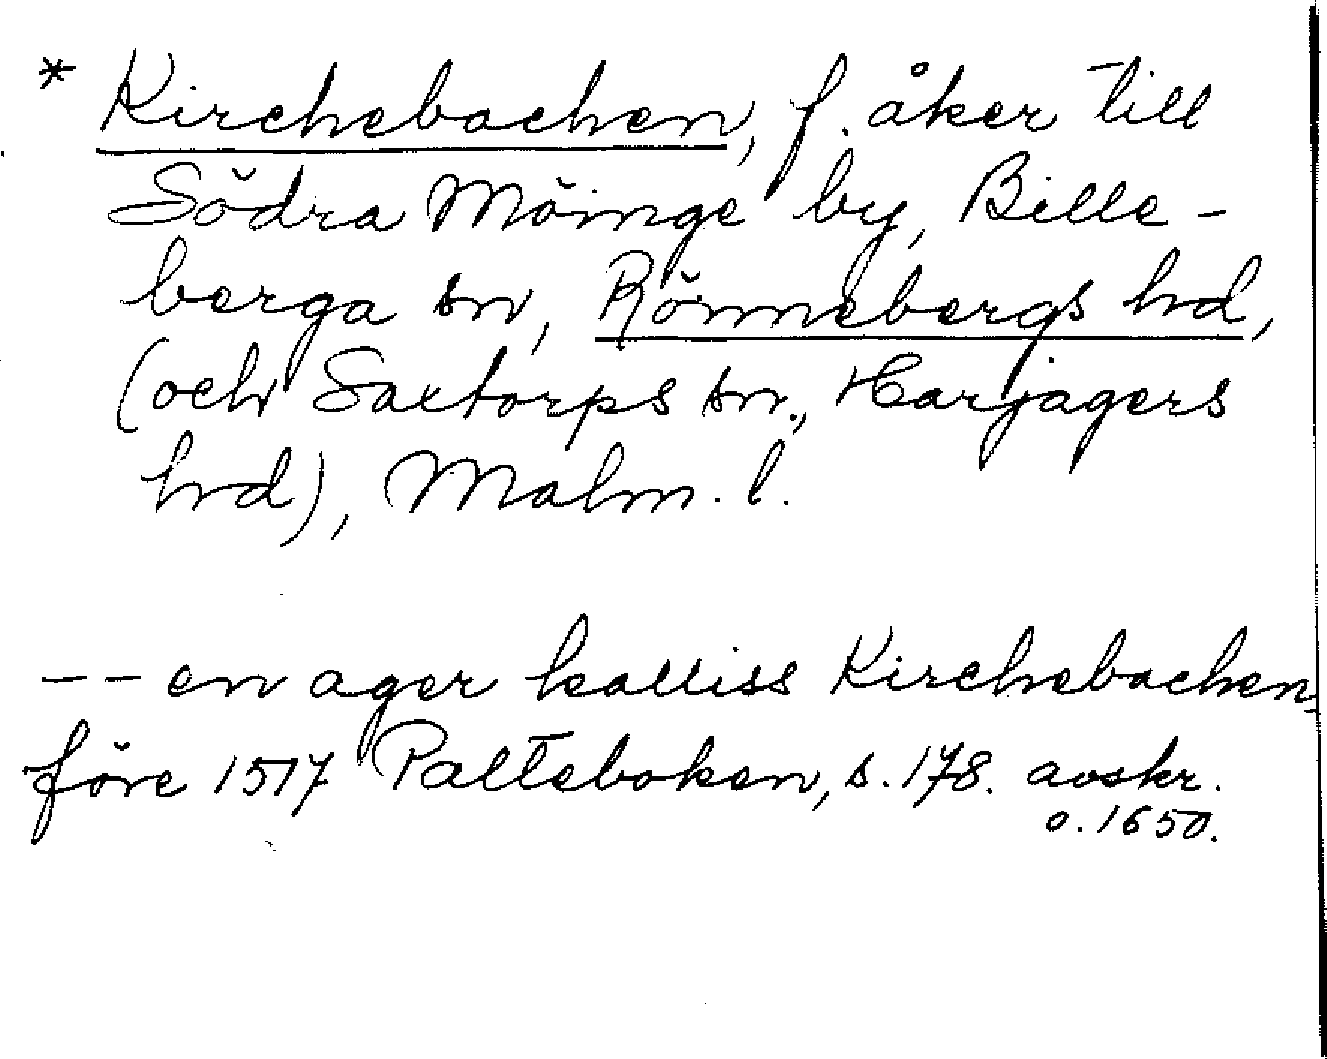 * Kirchebachen, f. åker till
Södra Möinge by, Bille-
berga sn, Rönnebergs hd,
(och Saxtorps sn., Harjagers
hd), Malm. l.
-- en ager kalliss Kirchebachen
före 1517 Palteboken, s. 178. avskr.
o. 1650.